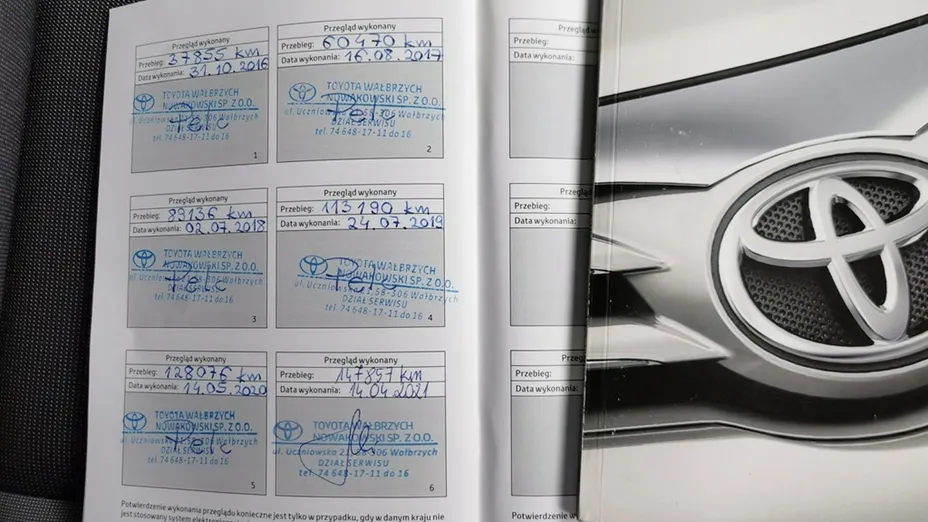 Przegląd wykonany
Przebieg: 37855 km
Data wykonania: 31.10.2016
TOYOTA WAŁBRZYCH
NOWAKOWSKI SP. Z O.O.
ul. Uczniowska 21, 58-306 Wałbrzych
DZIAŁ SERWISU
tel. 74 648-17-11 do 16
1
Przegląd wykonany
Przebieg: 60470 km
Data wykonania: 16.08.2017
TOYOTA WAŁBRZYCH
NOWAKOWSKI SP. Z O.O.
ul. Uczniowska 21, 58-306 Wałbrzych
DZIAŁ SERWISU
tel. 74 648-17-11 do 16
2
Przegląd wykonany
Przebieg: 83136 km
Data wykonania: 02.07.2018
TOYOTA WAŁBRZYCH
NOWAKOWSKI SP. Z O.O.
ul. Uczniowska 21, 58-306 Wałbrzych
DZIAŁ SERWISU
tel. 74 648-17-11 do 16
3
Przegląd wykonany
Przebieg: 113190 km
Data wykonania: 24.07.2019
TOYOTA WAŁBRZYCH
NOWAKOWSKI SP. Z O.O.
ul. Uczniowska 21, 58-306 Wałbrzych
DZIAŁ SERWISU
tel. 74 648-17-11 do 16
4
Przegląd wykonany
Przebieg: 128076 km
Data wykonania: 14.05.2020
TOYOTA WAŁBRZYCH
NOWAKOWSKI SP. Z O.O.
ul. Uczniowska 21, 58-306 Wałbrzych
DZIAŁ SERWISU
tel. 74 648-17-11 do 16
5
Przegląd wykonany
Przebieg: 147857 km
Data wykonania: 14.04.2021
TOYOTA WAŁBRZYCH
NOWAKOWSKI SP. Z O.O.
ul. Uczniowska 21, 58-306 Wałbrzych
DZIAŁ SERWISU
tel. 74 648-17-11 do 16
6
Potwierdzenie wykonania przeglądu konieczne jest tylko w przypadku, gdy w danym kraju nie
jest stosowany system
Przegląd w
Przebieg:
Data wykonania:
Przeglą
Przebieg:
Data wykonania:
Przeg
Przebieg:
Data wykonania:
Potwierdzenie w